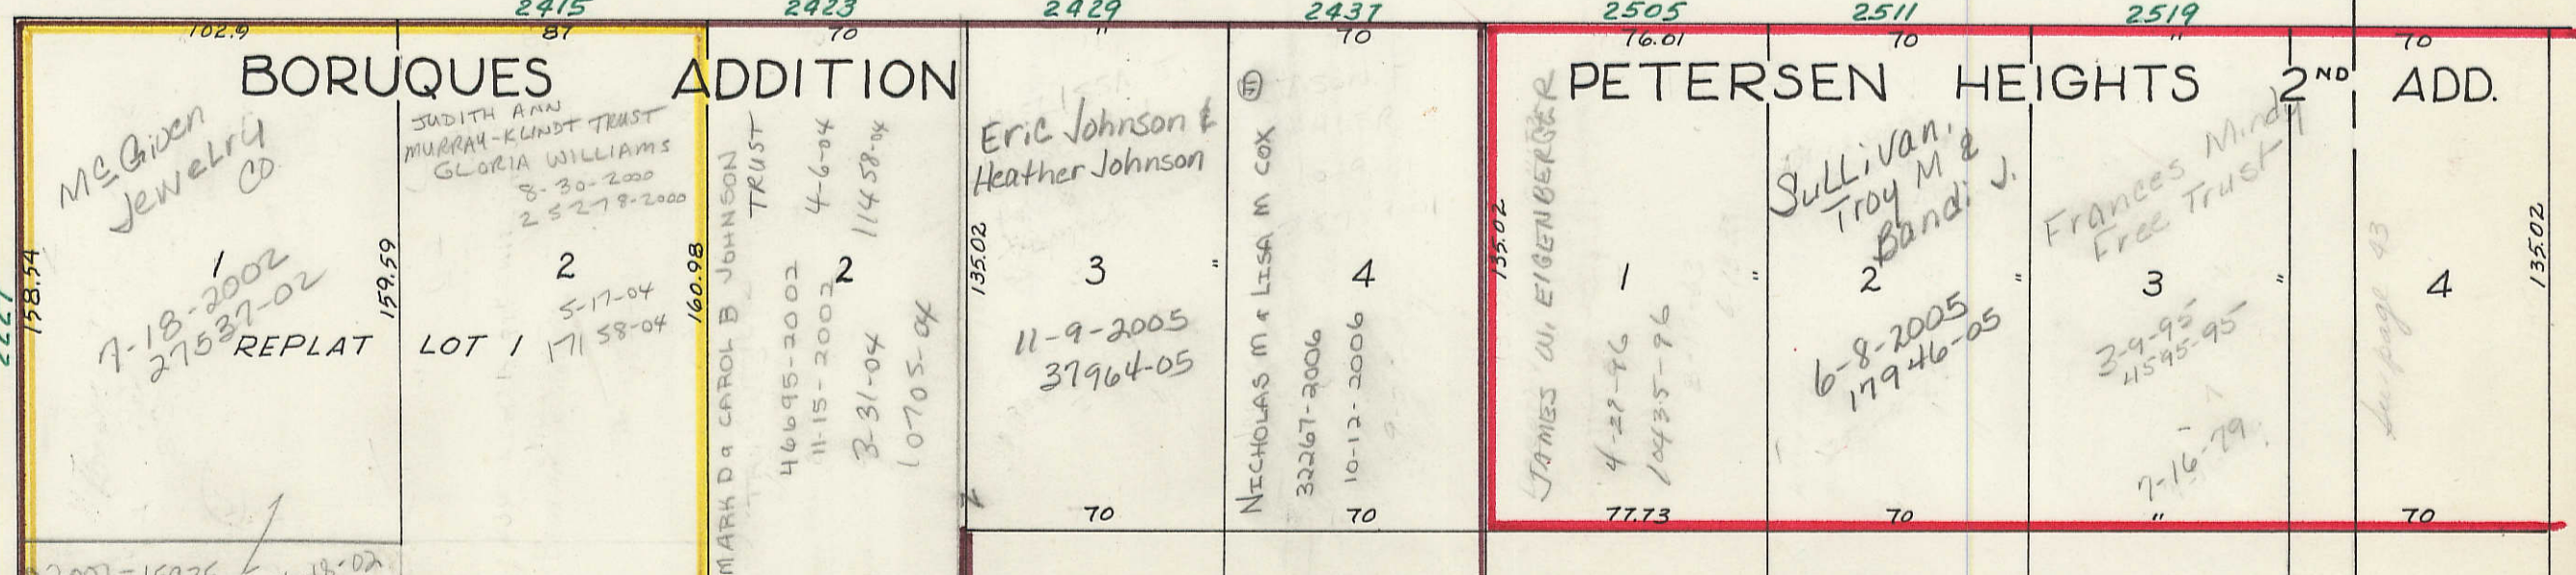 2415
2423
2429
2437
2505
2511
2519
102.9
87
70
"
70
76.01
70
"
70
BORUQUES ADDITION
PETERSEN HEIGHTS 2ND ADD.
McGiven
Jewelry
Co
1
7-18-2002
27537-02
158.54
159.59
REPLAT LOT 1
JUDITH ANN
MURRAY-KLINDT TRUST
GLORIA WILLIAMS
8-30-2000
25278-2000
2
5-17-04
17158-04
160.98
MARK D & CAROL B JOHNSON
TRUST
46695-2002
11-15-2002
4-6-04
11458-04
3-31-04
10705-04
2
Eric Johnson &
Heather Johnson
135.02
3
"
11-9-2005
37964-05
70
NICHOLAS M & LISA M COX
32267-2006
10-12-2006
4
70
135.02
JAMES W. EIGENBERGER
1
"
10435-96
77.73
Sullivan,
Troy M &
Bandi J.
2
"
6-8-2005
17946-05
70
Frances Mindy
Free Trust
3
"
3-9-95
4595-95
7-16-79
"
page 43
4
135.02
70
18-02